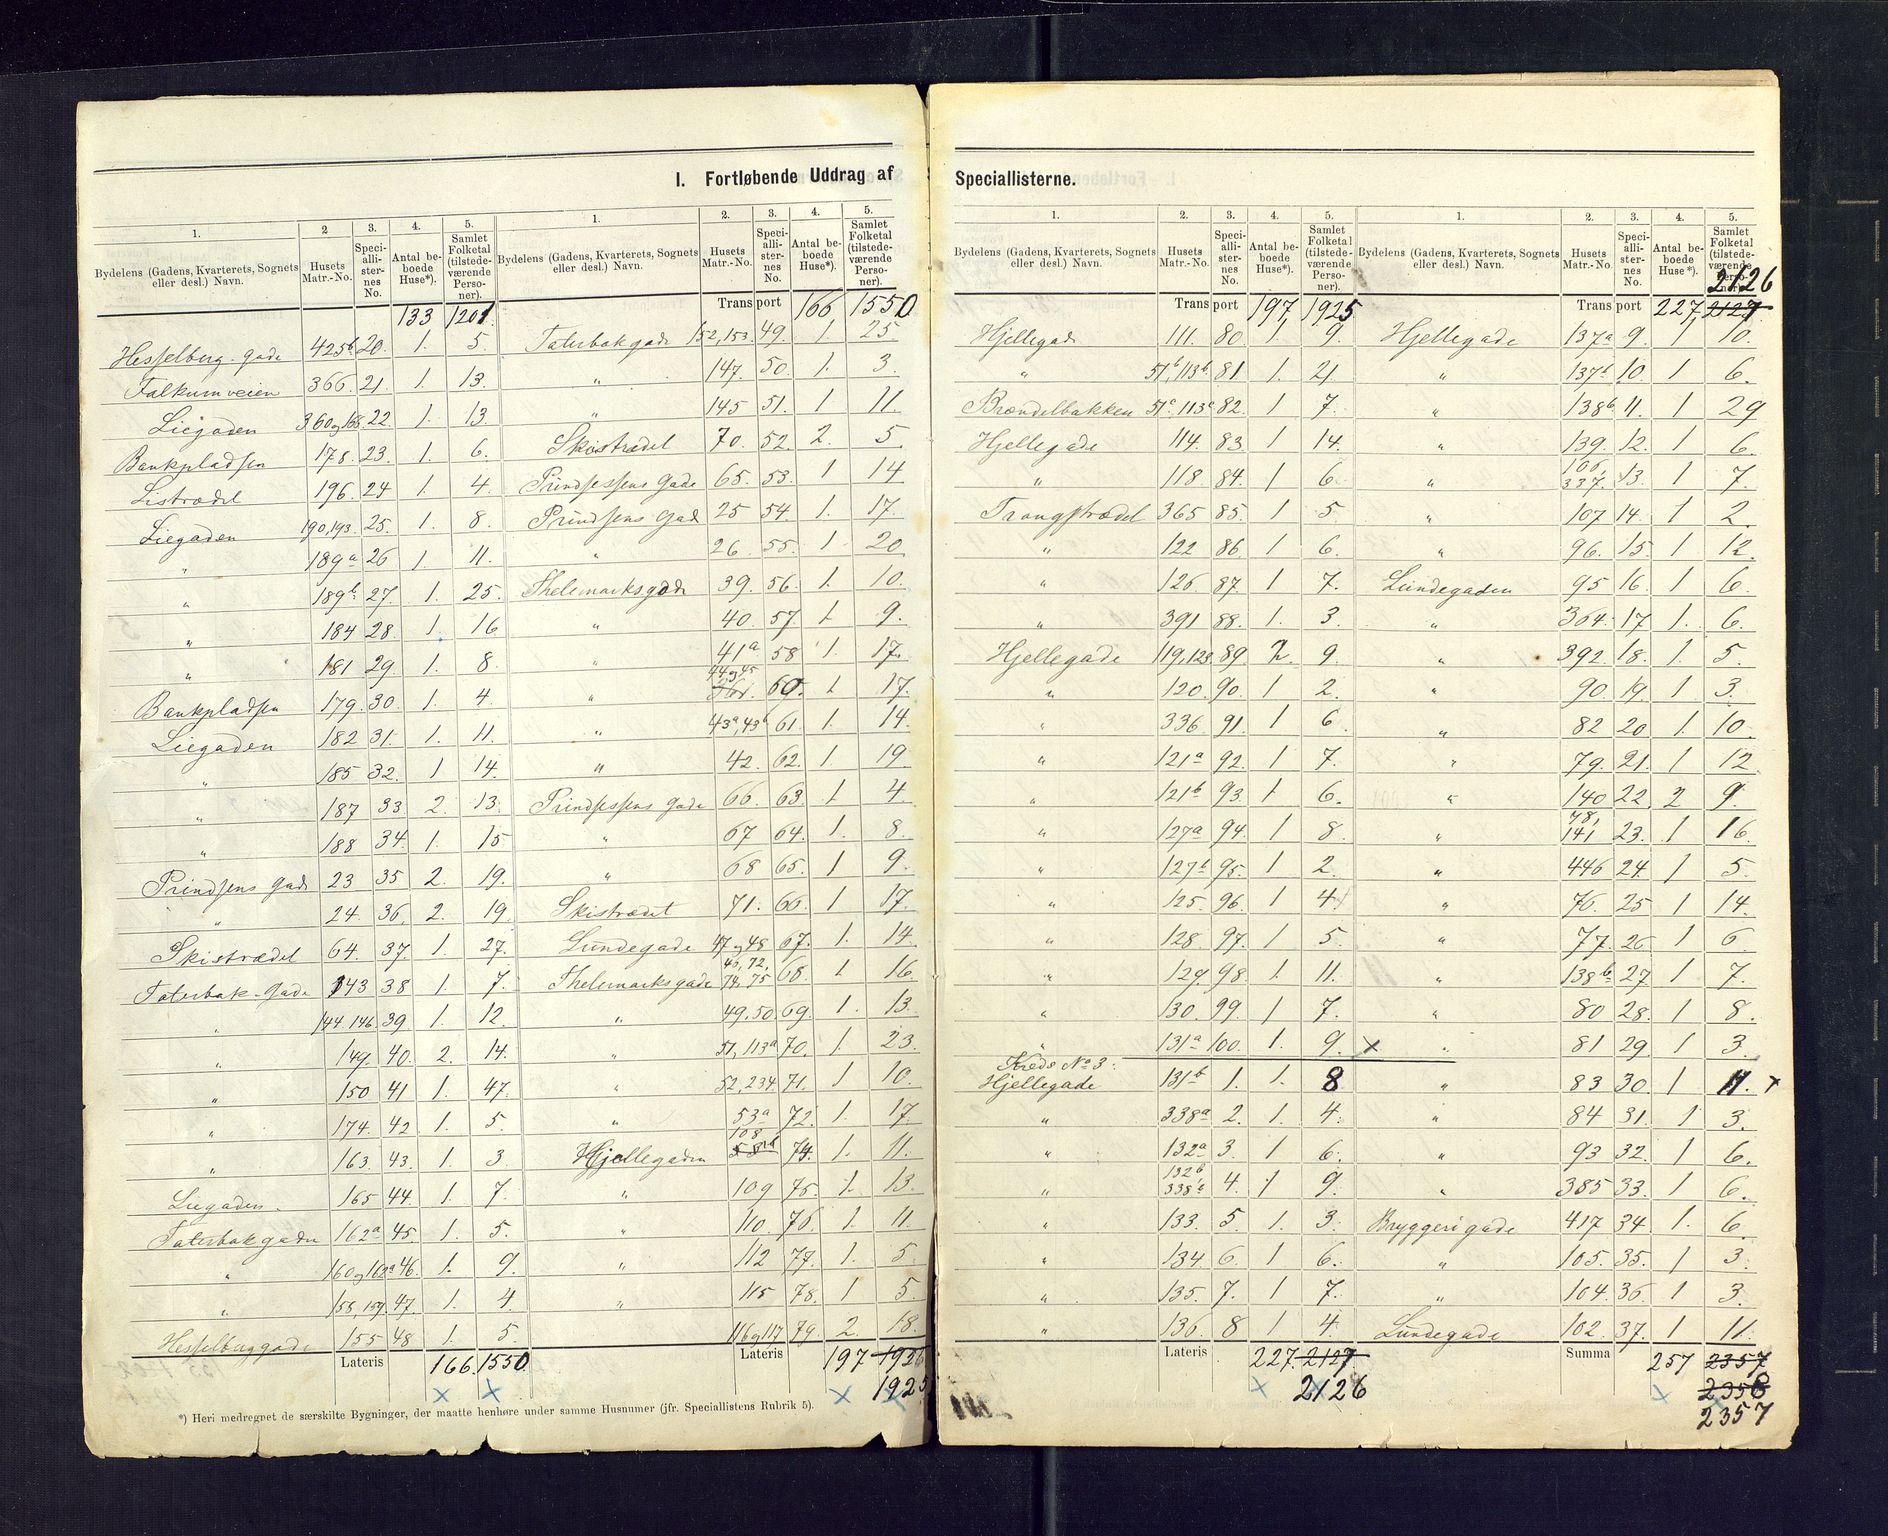 I. Fortløbende Uddrag af Speciallisterne.
1. 2 3. 4. 5.
Bydelens (Gadens, Kvarterets, Sognets eller desl.) Navn. Husets Matr.-No. Specialisternes No. Antal beboede Huse*). Samlet Folketal (tilstedeværende Personer).
133 1201
Hesselberg-gade 425b 20. 1. 5.
Falkumveien 366. 21. 1. 13.
Liegaden 360 og 168 22. 1. 13.
Bankpladsen 178. 23. 1. 6.
Listrædet 196. 24 1. 4.
Liegaden 190,193. 25. 1. 8.
" 189a 26 1. 11.
" 189b. 27. 1. 25.
" 184 28. 1. 16
" 181 29. 1. 8.
Bankpladsen 179. 30. 1. 4.
Liegaden 182 31. 1. 11.
" 185 32. 1 14.
" 187 33 2. 13.
" 188 34. 1. 15.
Prindsens Gade 23 35 2. 19.
" 24. 36. 2. 19.
Skistrædet 64. 37. 1. 27.
Taterbak-Gade 143 38 1. 7.
" 144. 146. 39 1. 12.
" 149. 40. 2. 14.
" 150 41 1. 47.
" 174. 42 1. 5.
" 163. 43. 1. 3
Liegaden. 165 44. 1. 7.
Taterbakgaden 162a 45. 1. 5.
" 160 og 162a 46. 1. 9.
" 158, 159. 47. 1. 4.
Hesselberggade 155 48 1. 5.
Lateris 166. 1550.
1. 2. 3. 4. 5.
Bydelens (Gadens, Kvarterets, Sognets eller desl.) Navn. Husets Matr.-No. Speciallisternes No. Antal beboede Huse*). Samlet Folketal (tilstedeværende Personer).
Transport 166 1550
Taterbakgade 152, 153. 49. 1. 25.
" 147. 50. 1. 3.
" 145 51. 1 11.
Skistrædet 70. 52. 2. 5.
Prindsessens Gade 65. 53. 1 14
Prindsens Gad 25 54. 1. 17.
" 26. 55. 1 20
Thelemarksgade 39. 56. 1. 10.
" 40. 57. 1 9.
" 41a 58 1. 17.
" 44 og 45 60. 1 17.
" 43a, 43b 61. 1. 14.
" 42. 62. 1. 19.
Prindsessens Gade 66. 63. 1 4.
" 67 64. 1. 8.
" 68 65. 1 9.
Skistrædet 71. 66. 1 17.
Lundegade 47 og 48 67. 1. 14.
Thelemarksgade 46, 72, 74, 75 68. 1 16.
" 49, 50 69. 1 13.
" 51, 113a 70. 1 23.
" 52, 234. 71. 1 10.
" 53a 72. 1. 17.
Hjellegaden 108 74. 1. 11.
" 109 75. 1. 13.
" 110. 76. 1. 11.
" 112 77. 1. 5.
" 115 78. 1 5.
" 116 og 117 79 2. 18.
Lateris 197 1926
1925
*) Heri medregnet de særskilte Bygninger, der maatte henhøre under samme Husnumer (jfr. Speciallistens Rubrik 5).
1. 2. 3. 4. 5.
Bydelens (Gadens, Kvarterets, Sognets eller desl.) Navn. Husets Matr.-No. Speciallisternes No. Antal beboede Huse*). Samlet Folketal (tilstedeværende Personer).
Transport 197 1925
Hjellegade 111. 80. 1. 9.
" 51b, 113b. 81. 1. 21.
Brændelbakken 51c, 113a 82. 1 7.
Hjellegade 114. 83. 1 14.
" 118 84. 1 6
Trangstrædet 365 85. 1 5
" 122 86. 1 6.
" 126 87. 1 7.
" 391 88. 1. 3.
Hjellegade 119, 123. 89. 2. 9.
" 120. 90. 1 2.
" 336 91. 1 6.
" 121a 92. 1 7.
" 121b 93. 1 6.
" 127a 94. 1 8.
" 127b 95. 1 2.
" 125 96. 1 4.
" 128. 97. 1 5.
" 129. 98. 1. 11.
" 130. 99. 1 7.
" 131a 100. 1. 9.
Kreds No 3.
Hjellegade 131b 1. 1. 8
" 338a 2. 1. 4.
" 132a 3. 1 6.
" 132b 338a 4. 1 9.
" 133. 5. 1. 3.
" 134. 6. 1 6.
" 135. 7. 1 7.
" 136. 8 1 4.
Lateris 227. 2127
2126
1. 2. 3. 4. 5.
Bydelens (Gadens, Kvarterets, Sognets eller desl.) Navn. Husets Matr.-No. Speciallisternes No. Antal beboede Huse*). Samlet Folketal (tilstedeværende Personer).
2126
Transport 227 2127
Hjellegade 137a 9. 1 10.
" 137b 10. 1 6.
" 138b 11. 1 29
" 139. 12. 1 6.
" 100, 337. 13. 1 7.
" 107 14. 1 2.
" 96. 15. 1 12.
Lundegaden 95 16. 1 6.
" 364. 17. 1. 6.
" 392. 18. 1. 5.
" 90. 19. 1 3.
" 82 20 1. 10.
" 79. 21. 1 12.
" 140 22. 2 9.
" 78, 141 23. 1 16
" 446 24. 1 5
" 76. 25 1 14.
" 77. 26 1 6
" 138b 27. 1 7.
" 80 28. 1 8.
x " 81 29. 1 3.
" 83 30. 1 11. x
" 84 31. 1 3.
" 93 32. 1 6.
" 385 33. 1 6.
Bryggerigade 417 34 1. 6.
" 105. 35. 1 3.
" 104. 36. 1 3.
Lundegade 102. 37. 1 11.
Summa 257 2357
2358
2357